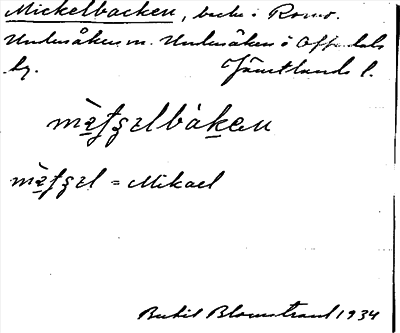 Mickelbacken, backe i Romo.
Undersåkers sn. Undersåkers o Offerdals
tg. Jämtlands l.
mæ̀ʃʂelbàken
mæ̀ʃʂel = Mikael
Bertil Blomstrand 1934